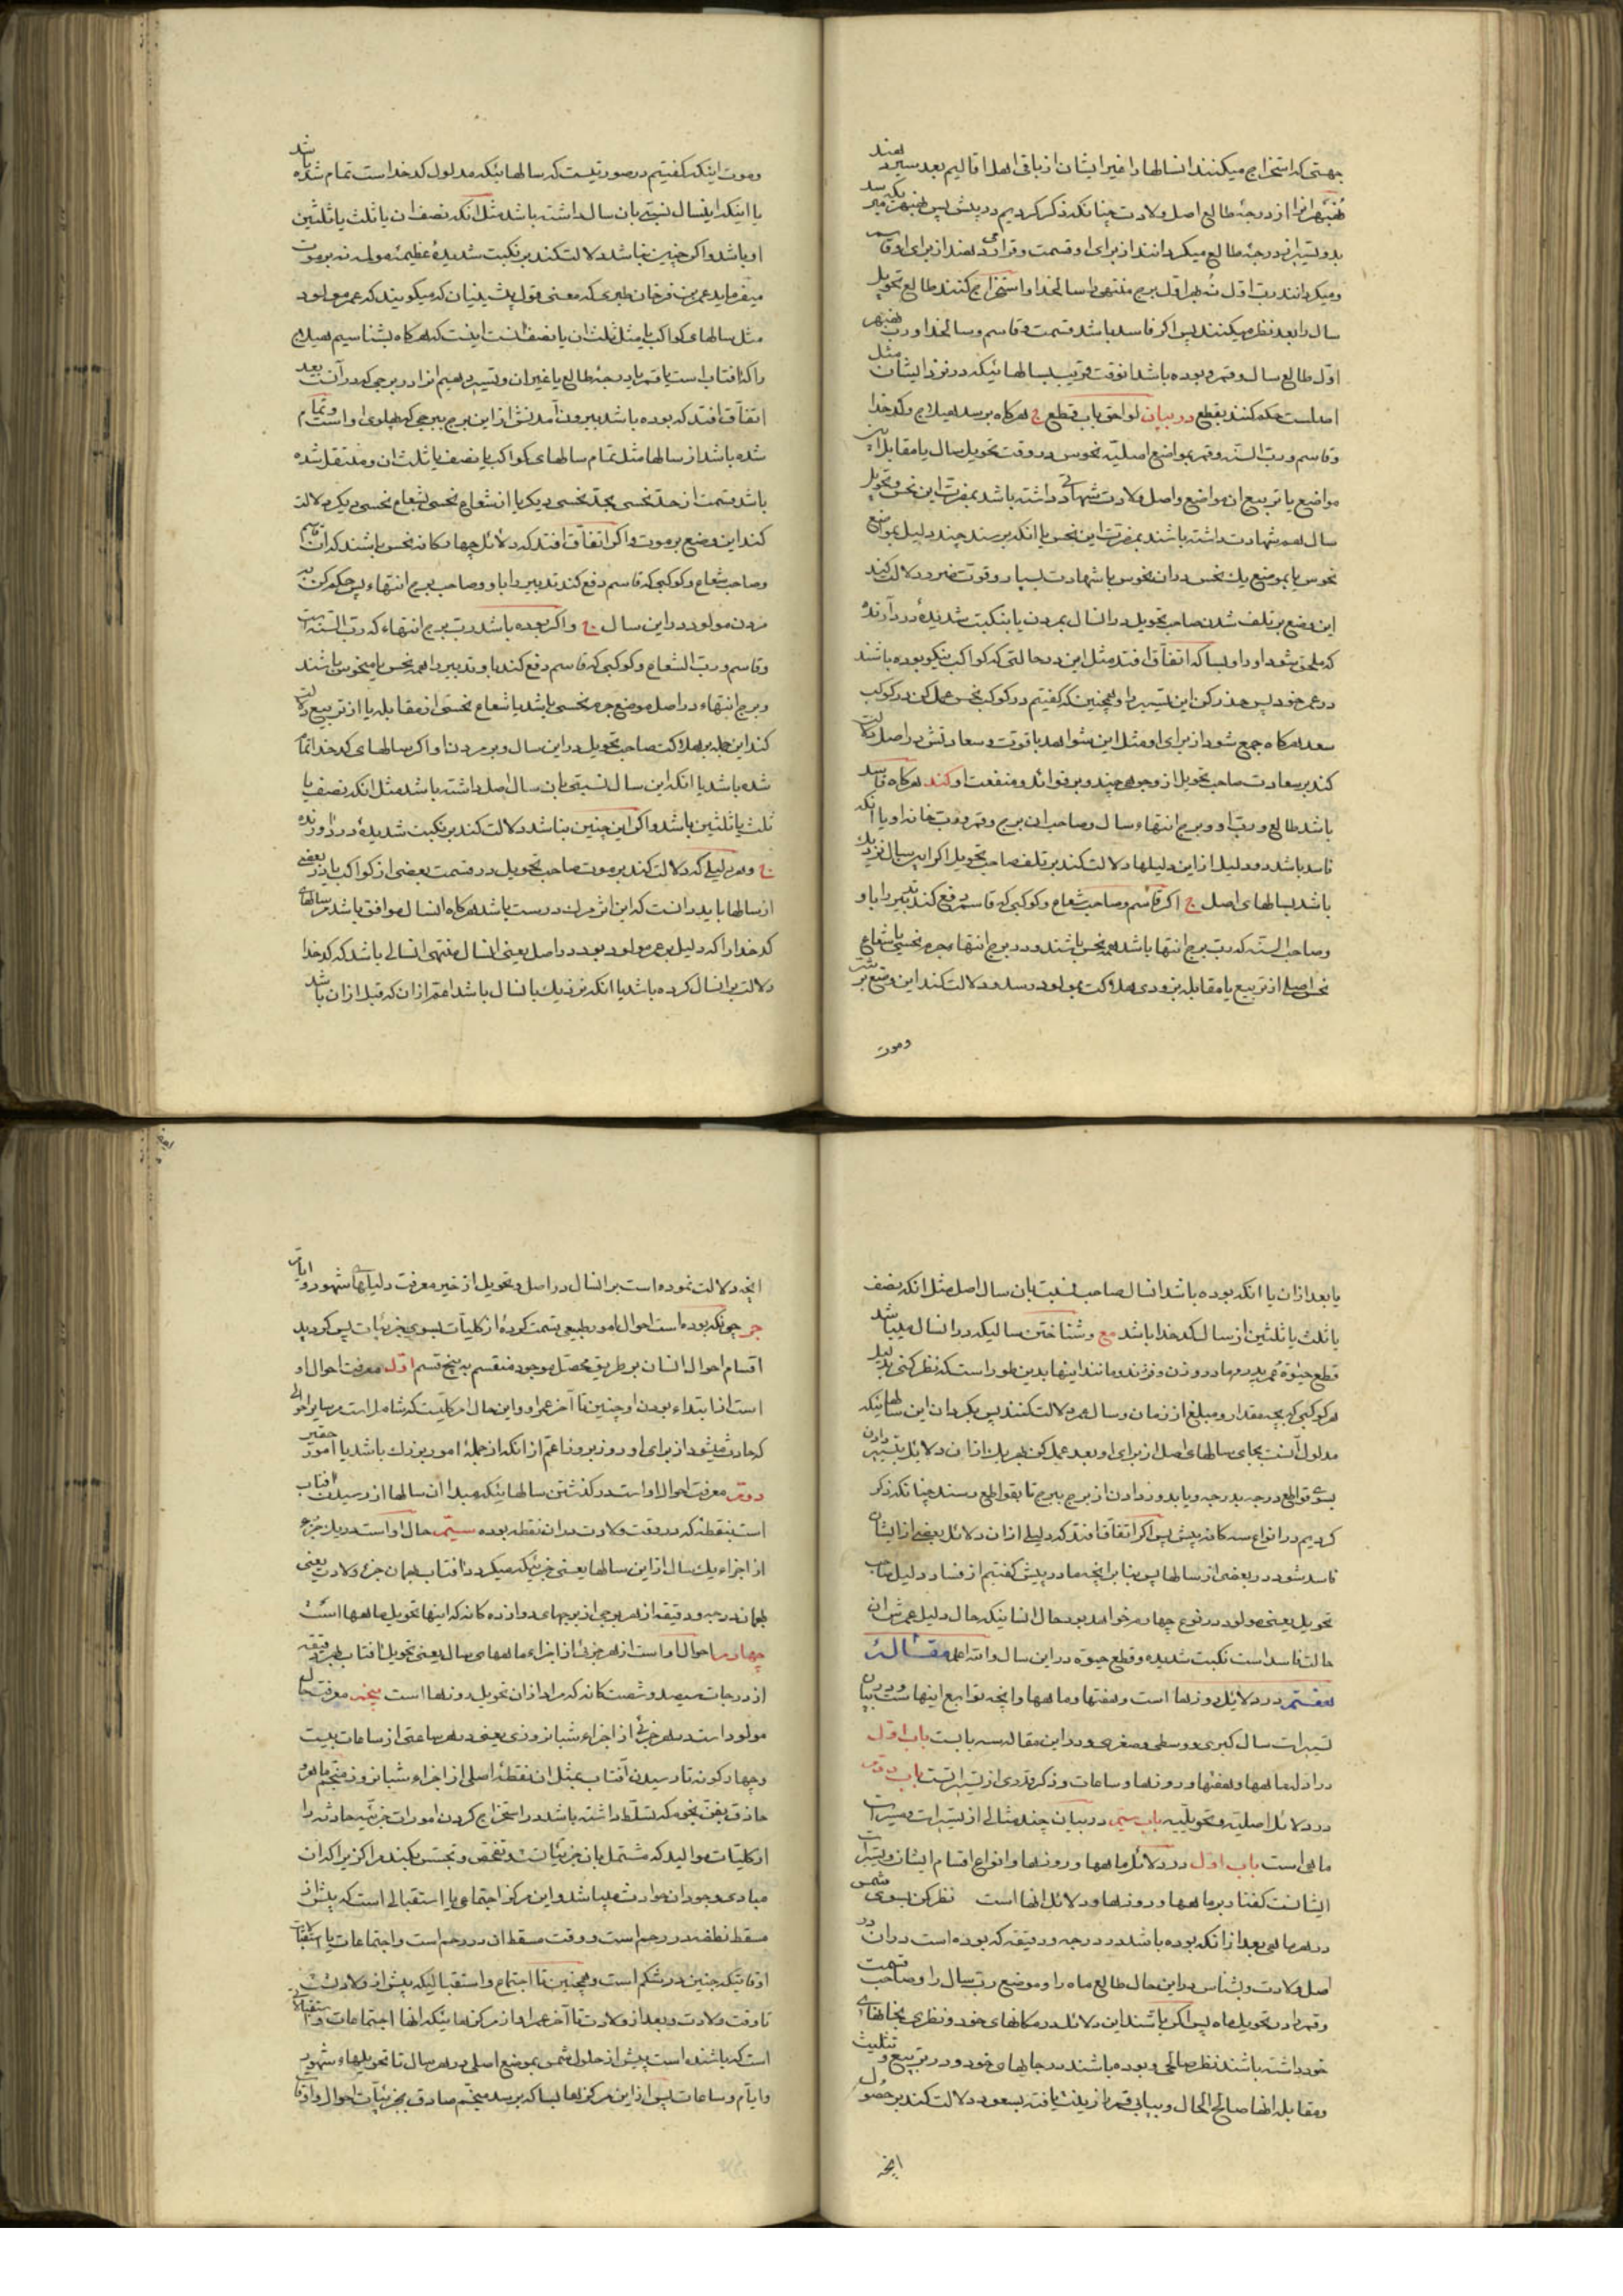 جهتی که استخراج میکنند انسالها را غیر ایشان از باقی اهل اقالیم بعد سیر دهند
از درجهٔ طالع اصل ولادت چنانکه ذکر کردیم در پیش پس
درجهٔ طالع میکردانند از برای او قسمت و قرار دهند از برای او قاسم
ومیکردانند رب اول نه بهر اول برج منتهی را سالخدا و استخراج کنند طالع تحویل
سال را بعد نظر میکنند پس اکر فاسد باشد قسمت و قاسم و سالخدا و رب نهبهر
اول طالع سال و قمر و بوده باشد انوقت قریب بسالهائیکه در نزد ایشان مثل
اصلست حکم کنند بقطع در بیان لواحق باب قطع ج هرکاه برسد هیلاج و کدخدا
وقاسم و رب السنه وقمر بمواضع اصلیهٔ نحوس در وقت تحویل سال یا مقابله آن
مواضع یا تربیع ان مواضع واصل ولادت شهادتی داشته باشد بمضرت این نحس و تحویل
سال هم شهادت داشته باشند بمضرت این نحس یا انکه برسند چند دلیل بمواضع
نحوس یا بموضع یک نحس و ان نحوس با شهادت بسیار و قوت ضرر دلالت کند
این وضع بر تلف شدن صاحب تحویل در انسال بمردن یا بنکبت شدیدهٔ دردآورنده
که ملحق شود او را و بسا که اتفاق افتد مثل این در حالتی که کواکب نیکو بوده باشند
در عمر خود پس حذر کن این تسییر را و همچنین که کفتیم در کوکب نحس عمل کن در کوکب
سعد هرکاه جمع شود از برای او مثل این شواهد با قوت و سعادتش در اصل دلالت
کند بر سعادت صاحب تحویل از وجوه چند و بر فوائد و منفعت او کند هرکاه فاسد
باشد طالع و رب او و برج انتهاء سال و صاحب ان برج و قمر و رب خانه او یا انکه
فاسد باشد دو دلیل از این دلیلها دلالت کند بر تلف صاحب تحویل اکر این سال نزدیک
باشد بسالهای اصل ج اکر قاسم و صاحب شعاع و کوکبی که قاسم دفع کند تدبیر را باو
وصاحب السنه که رب برج انتها باشد همه نحس باشند و در برج انتها جرم نحسی یا شعاع
نحس اصلی از تربیع یا مقابله بزودی هلاکت بمولود رسد و دلالت کند این وضع بر شدت
وموت
وموت اینکه کفتیم در صورتیست که سالهائیکه مدلول کدخداست تمام شده باشد
یا اینکه اینسال نسبتی بان سال داشته باشد مثل انکه نصف ان یا ثلث یا ثلثین
او باشد و اکر چنین نباشد دلالت کند بر نکبت شدیدهٔ عظیمهٔ مولد نه بر موت
میفرماید عمر بن فرخان طبری که معنی قول پیشینیان که میکویند که عمر مولود
مثل سالهای کواکب یا مثل ثلث ان یا نصف انست اینست که هرکاه بشناسیم هیلاج
را که افتاب است یا قمر یا درجهٔ طالع یا غیر ان و تسییر دهیم انرا در برجی که در آنست بعد
اتفاق افتد که بوده باشد بیرون آمدنش از این برج ببرجی که پهلوی اوست و تمام
شده باشد از سالها مثل تمام سالهای کواکب یا نصف یا ثلث ان و منتقل شده
باشد قسمت از حد نحسی بحد نحسی دیکر یا از شعاع نحسی بشعاع نحسی دیکر دلالت
کند این وضع بر موت و اکر اتفاق افتد که دلائل چهارکانه نحس باشند که ان قاسم
وصاحب شعاع و کوکبی که قاسم دفع کند تدبیر را باو و صاحب برج انتهاء پس حکم کن به
مردن مولود در این سال ج و اکر بوده باشد رب برج انتهاء که رب السنه است
وقاسم و رب الشعاع و کوکبی که قاسم دفع کند باو تدبیر را همه نحس یا منحوس باشند
وبرج انتهاء در اصل موضع جرم نحسی باشد یا شعاع نحسی از مقابله یا از تربیع دلالت
کند این جمله بر هلاکت صاحب تحویل در این سال و بر مردن او اکر سالهای کدخدا تمام
شده باشد یا انکه این سال نسبتی بان سال اصل داشته باشد مثل انکه نصف یا
ثلث یا ثلثین باشد و اکر این چنین نباشد دلالت کند بر نکبت شدیدهٔ دردآورنده
ج وهر دلیلی که دلالت کند بر موت صاحب تحویل در قسمت بعضی از کواکب یا در بعضی
از سالها باید دانست که این اثر مر ان درست باشد هرکاه انسال موافق باشد مر سالهای
کدخدا را که دلیل بر عمر مولود بود در اصل یعنی انسال منتهی انسالی باشد که کدخدا
دلالت بر انسال کرده باشد یا انکه نزدیک بانسال باشد اعم از ان که قبل از ان باشد
یا بعد از ان یا انکه بوده باشد انسال صاحب نسبت بان سال اصل مثل انکه نصف
یا ثلث یا ثلثین از سال کدخدا باشد مع و شناختن سالیکه در انسال میباشد
قطع حیوة عمر پدر و مادر و زن و فرزند و مانند اینها بدین طور است که نظر کنی بدلیل
هر کوکبی که بچه مقدار و مبلغ از زمان و سال عمر دلالت کنند پس بکردان این سالهائیکه
مدلول آنست بجای سالهای اصل از برای او بعد عمل کن بهر یک از ان دلائل بتسییر دادن
بسوی قواطع درجه بدرجه و یا بدور دادن از برج ببرج تا بقواطع رسند چنانکه ذکر
کردیم در انواع سه کانه پیش پس اکر اتفاق افتد که دلیلی از ان دلائل بعضی از ایشان
فاسد شود در بعضی از سالها پس بنا بر انچه ما در پیش کفتیم از فساد دلیل صاحب
تحویل یعنی مولود در نوع چهارم خواهد بود حال انسانیکه حال دلیل عمرش ان
حالت فاسد است نکبت شدیده و قطع حیوة در این سال والله اعلم مقالهٔ
هفتم در دلائل روزها است و هفتها و ماهها و انچه توابع اینهاست و در بیان
تسییرات سال کبری و وسطی و صغری و در این مقاله سه بابست باب اول
در ادله ماهها و هفتها و روزها و ساعات و ذکر قدری از تسییراتست باب دوم
در دلائل اصلیه و تحویلیه باب سیم در بیان چند مثالی از تسییرات و مسیرات
ماهی است باب اول در دلائل ماهها و روزها و انواع اقسام ایشان و تسییرات
ایشانست کفتار بر ماهها و روزها و دلائل انها است نظر کن بسوی شمس
در هر ماهی بعد از انکه بوده باشد در درجه و دقیقه که بوده است در ان در
اصل ولادت و بشناس در این حال طالع ماه را و موضع رب سال را و صاحب قسمت
وقمر را در تحویل ماه پس اکر باشند این دلائل در مکانهای خود و نظری بخانهای
خود داشته باشند نظر صالحی و بوده باشند در جاهای خود و در تربیع و تثلیث
ومقابله انها صالح الحال و بیابی قمر را زینت یافته بسعود دلالت کند بر حصول
انچه
انچه دلالت نموده است بر انسال در اصل و تحویل از خیر معرفت دلیلهای شهور و ایام
چونکه بوده است احوال امور طبیعی قسمت کرده از کلیات بسوی جزئیات پس کردید
اقسام احوال انسان بر طریق محصل موجود منقسم به پنج قسم اول معرفت احوال او
است از ابتداء بودن او چنین تا آخر عمر او و این حال امر کلیست که شامل است مر سایر احوالی
که حادث میشود از برای او روز بروز اعم از انکه از جملهٔ امور بزرک باشد یا امور حقیر
دویم معرفت احوال او است در کذشتن سالهائیکه مبدأ ان سالها از رسیدن افتاب
است بنقطهٔ که در وقت ولادت در ان نقطه بوده سیم حال او است در یک جزء
از اجزاء یک سال از این سالها یعنی جزئیکه میکردد افتاب بهمان جزء ولادت یعنی
بهمان درجه و دقیقه از هر برجی از برجهای دوازده کانه که اینها تحویل ماهها است
چهارم احوال او است از هر جزئی از اجزاء ماههای سال یعنی تحویل افتاب بهر دقیقه
از درجات سیصد و شصت کانه که مراد از ان تحویل روزها است پنجم معرفت حال
مولود است در هر جزئی از اجزاء شبانروزی یعنی در هر ساعتی از ساعات بیست
وچهارکونه تا رسیدن آفتاب بمثل ان نقطهٔ اصلی از اجزاء شبانروز منجم ماهر
حاذق بفن نجوم که تسلط داشته باشد در استخراج کردن امورات جزئیه حادثه را
از کلیات موالید که مشتمل بان جزئیات تفحص و تجسس بکند مراکزیرا که ان
مبادی وجود ان حوادث میباشد و این مرکز اجتماعی یا استقبالی است که پیش از
مسقط نطفه در رحم است و وقت مسقط ان در رحم است و اجتماعات یا استقبالات
اوقاتیکه جنین در شکم است و همچنین تا اجتماع و استقبالیکه پیش از ولادتست
تا وقت ولادت و بعد از ولادت تا آخر عمر او از مرکزهائیکه انها اجتماعات و استقبالاتی
است که باشند است پیش از حلول شمس بموضع اصلی در هر سال تا تحویلهاء شهور
وایام و ساعات پس از این مرکزها بسا که برسد منجم صادق بجزئیات احوال و اوقات